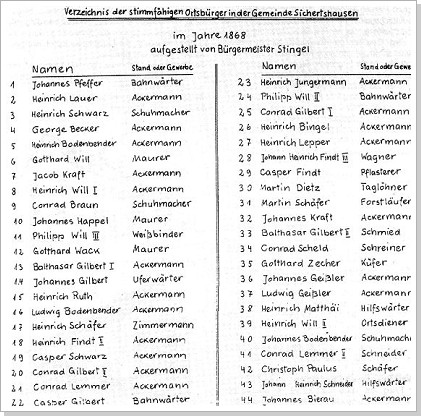 Verzeichnis der stimmfähigen Ortsbürger in der Gemeinde Sichertshausen
im Jahre 1868
aufgestellt von Bürgermeister Stingel
Namen Stand oder Gewerbe
1 Johannes Pfeffer Bahnwärter
2 Heinrich Lauer Ackermann
3 Heinrich Schwarz Schuhmacher
4 George Becker Ackermann
5 Heinrich Bodenbender Ackermann
6 Gotthard Will Maurer
7 Jacob Kraft Ackermann
8 Heinrich Will I Ackermann
9 Conrad Braun Schuhmacher
10 Johannes Happel Maurer
11 Philipp Will III Weißbinder
12 Gotthard Wack Maurer
13 Balthasar Gilbert I Ackermann
14 Johannes Gilbert Uferwärter
15 Heinrich Ruth Ackermann
16 Ludwig Bodenbender Ackermann
17 Heinrich Schäfer Zimmermann
18 Heinrich Findt II Ackermann
19 Casper Schwarz Ackermann
20 Conrad Gilbert II Ackermann
21 Conrad Lemmer Ackermann
22 Casper Gilbert Bahnwärter
Namen Stand oder Gewe
23 Heinrich Jungermann Ackermann
24 Philipp Will II Bahnwärter
25 Conrad Gilbert I Ackermann
26 Heinrich Bingel Ackermann
27 Heinrich Lepper Ackermann
28 Johann Heinrich Findt III Wagner
29 Casper Findt Pflasterer
30 Martin Dietz Taglöhner
31 Martin Schäfer Forstläufer
32 Johannes Kraft Ackermann
33 Balthasar Gilbert II Schmied
34 Conrad Scheld Schreiner
35 Gotthard Zecher Küfer
36 Johannes Geißler Ackermann
37 Ludwig Geißler Ackermann
38 Heinrich Matthäi Hilfswärter
39 Heinrich Will I Ortsdiener
40 Johannes Bodenbender Schuhmache
41 Conrad Lemmer II Schneider
42 Christoph Paulus Schäfer
43 Johann Heinrich Schneider Hilfswärter
44 Johannes Bierau Ackermann